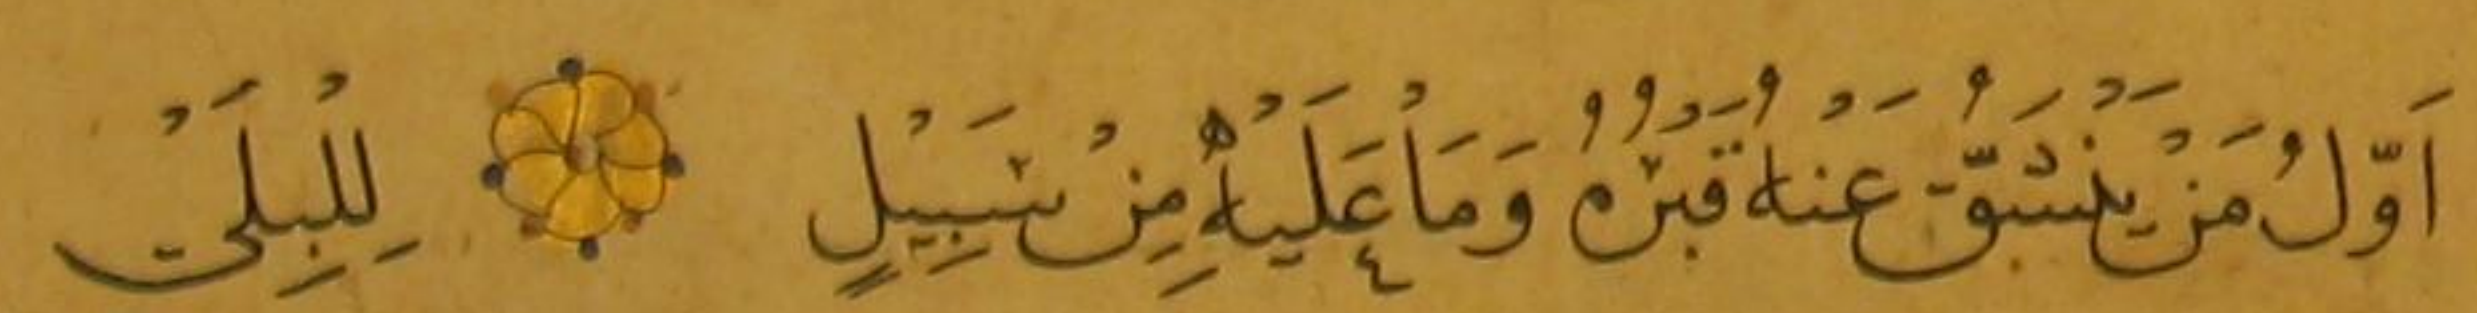 اَوَّلُ مَنْ يَنْشَقُّ عَنْهُ قَبْرُهُ وَمَا عَلَيْهِ مِنْ سَبِيْلٍ لِلْبِلَى